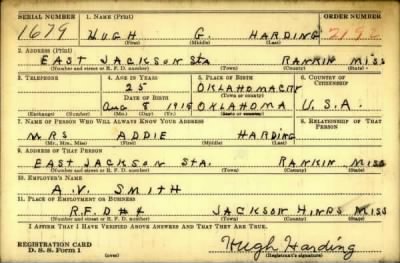 SERIAL NUMBER 1. NAME (Print) ORDER NUMBER
1679 HUGH G. HARDING
(First) (Middle) (Last)
2. ADDRESS (Print)
EAST JACKSON Sta RANKIN MISS
(Number and street or R. F. D. number) (Town) (County) (State)
3. TELEPHONE 4. AGE IN YEARS 5. PLACE OF BIRTH 6. COUNTRY OF CITIZENSHIP
25 OKLAHOMA CITY
DATE OF BIRTH (Town or county)
Aug 8 1915 OKLAHOMA U.S.A.
(Exchange) (Number) (Mo.) (Day) (Yr.) (State or country)
7. NAME OF PERSON WHO WILL ALWAYS KNOW YOUR ADDRESS 8. RELATIONSHIP OF THAT PERSON
MRS ADDIE HARDING
(Mr., Mrs., Miss) (First) (Middle) (Last)
9. ADDRESS OF THAT PERSON
EAST JACKSON STA. RANKIN MISS
(Number and street or R. F. D. number) (Town) (County) (State)
10. EMPLOYER'S NAME
A. V. SMITH
11. PLACE OF EMPLOYMENT OR BUSINESS
R.F.D #4 JACKSON HINDS MISS
(Number and street or R. F. D. number) (Town) (County) (State)
I AFFIRM THAT I HAVE VERIFIED ABOVE ANSWERS AND THAT THEY ARE TRUE.
REGISTRATION CARD Hugh Harding
D. S. S. Form 1 (over) (Registrant's signature)